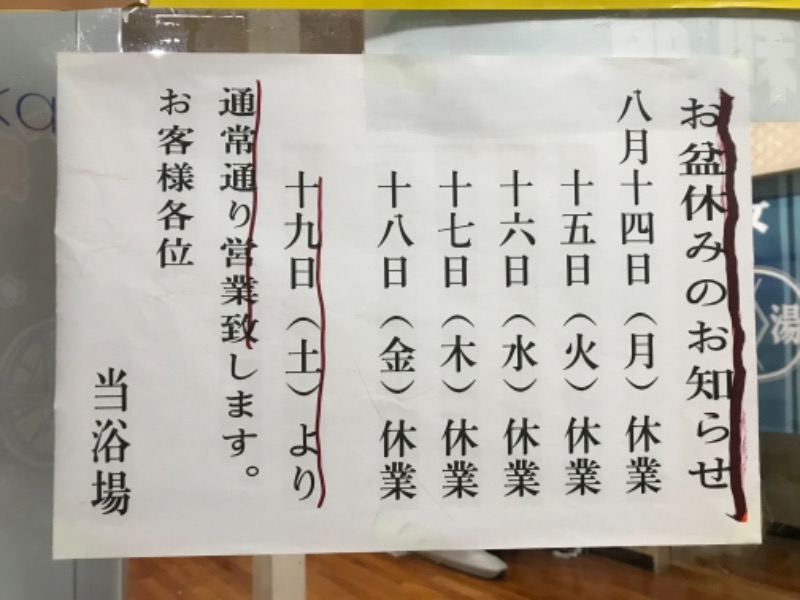 お盆休みのお知らせ
八月十四日（月）休業
十五日（火）休業
十六日（水）休業
十七日（木）休業
十八日（金）休業
十九日（土）より
通常通り営業致します。
お客様各位
当浴場
ka
女
湯